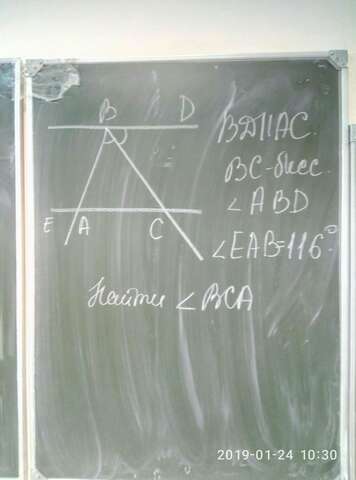 B D
BD || AC.
BC - бисс.
∠ ABD
E A C
∠EAB=116°
Найти ∠BCA
2019-01-24 10:30